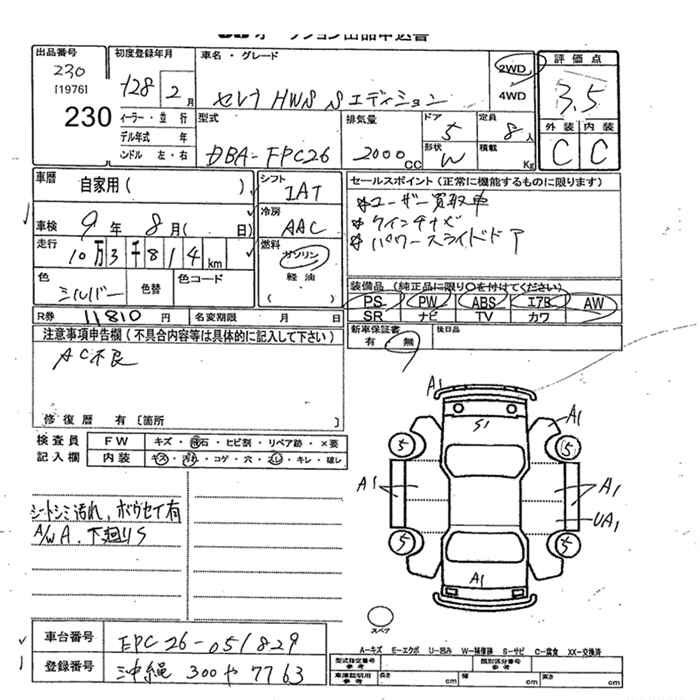 オークション出品申込書
出品番号
230
[1976]
230
初度登録年月
H28年 2月
車名・グレード
セレナ HWS Sエディション
2WD
4WD
評価点
3.5
外装 内装
C C
ィーラー・並行
デル年式 年
ンドル 左・右
型式
DBA-FPC26
排気量
2000cc
ドア
5
定員
8人
形状
W
積載
Kg
車歴
自家用( )
車検
9年 8月( 日)
走行
10万3千814km
色
シルバー
色替
色コード
シフト
IAT
冷房
AAC
燃料
ガソリン
軽油
( )
セールスポイント(正常に機能するものに限ります)
*ユーザー買取車
*ツインナビ
*パワースライドドア
装備品(純正品に限り○を付けてください)
PS PW ABS エアB AW
SR ナビ TV カワ
R券 11810円
名変期限 月 日
新車保証書
有・無
後日品
注意事項申告欄(不具合内容等は具体的に記入して下さい)
AC不良
修復歴 有〔箇所 〕
検査員
記入欄
FW キズ・飛石・ヒビ割・リペア跡・×要
内装 キズ・汚れ・コゲ・穴・スレ・キレ・破レ
シートシミ汚れ、ホウセイ有
A/W A、下廻りS
A1
S1
A1
5
5
A1
A1
UA1
5
5
A1
スペア
A-キズ E-エクボ U-凹み W-補修跡 S-サビ C-腐食 XX-交換済
車台番号
FPC26-051829
登録番号
沖縄 300や 7763
型式指定番号
参考
類別区分番号
参考
車庫証明用
参考
長さ cm
幅 cm
高さ cm